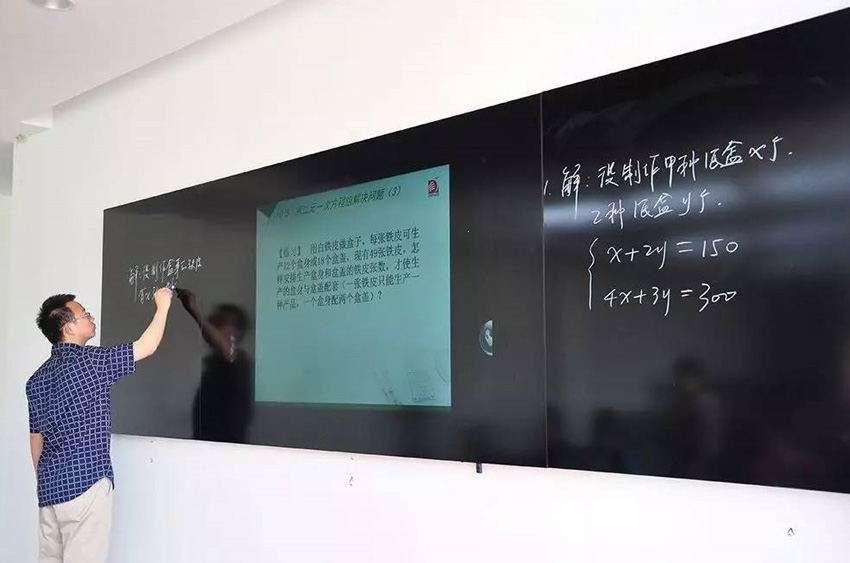 解：设制作盒身的铁皮
用二元一次方程组解决问题（3）
【练习】 用白铁皮做盒子，每张铁皮可生
产12个盒身或18个盒盖，现有49张铁皮，怎
样安排生产盒身和盒盖的铁皮张数，才使生
产的盒身与盒盖配套（一张铁皮只能生产一
种产品，一个盒身配两个盒盖）？
1. 解：设制作甲种底盒x个.
乙种底盒y个.
x+2y=150
4x+3y=300